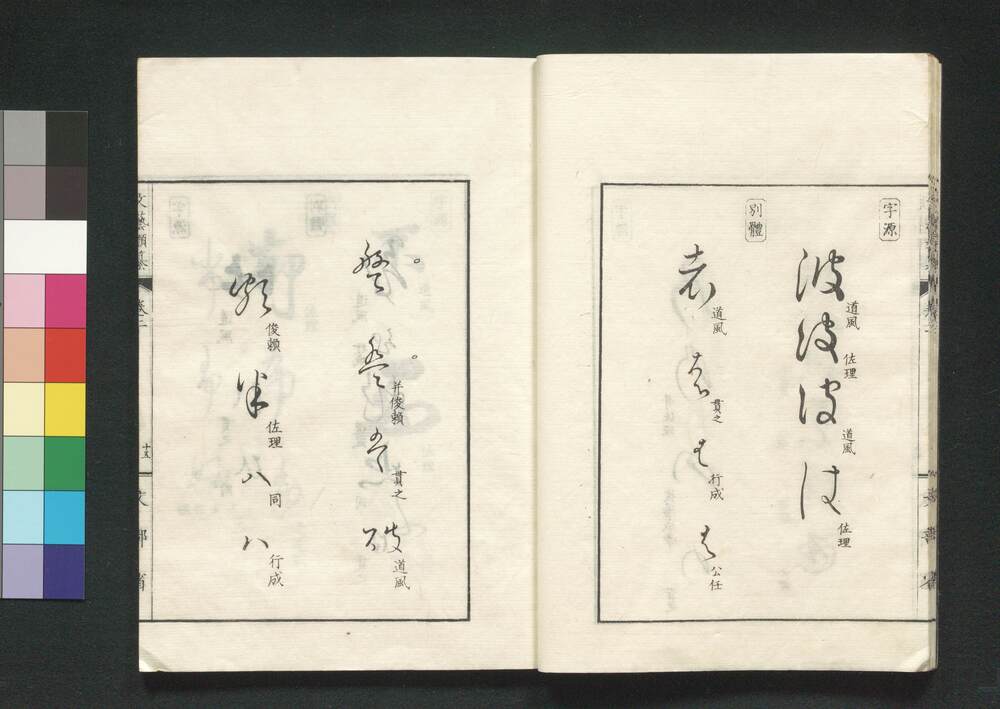 字源
波 道風 波 佐理 波 道風 波 佐理
別體
者 道風 者 貫之 者 行成 者 公任
盤 盤 并俊頼 貫之 破 道風
俊頼 半 佐理 八 同 八 行成
文藝類纂 卷二 十五 文部省